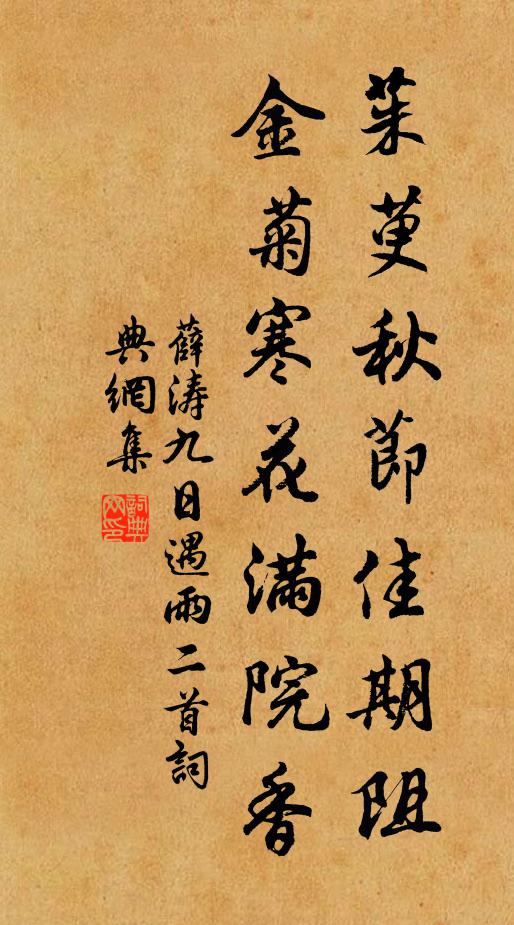 茱萸秋節佳期阻
金菊寒花滿院香
薛濤九日遇雨二首詞
典網集
詞典
网印